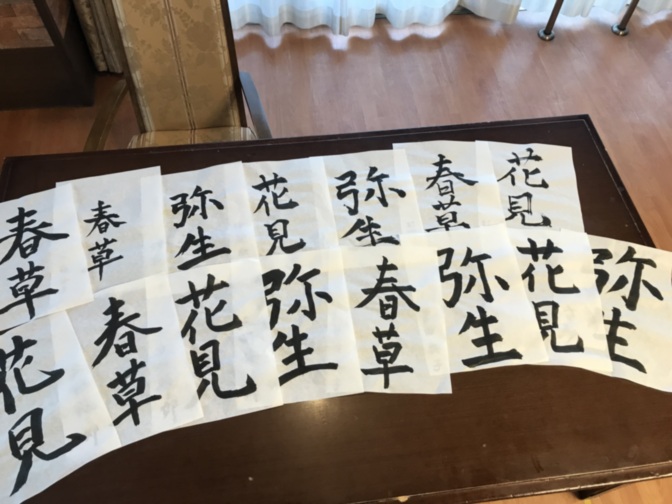 春草
春草
弥生
花見
弥生
春草
花見
花見
春草
花見
弥生
春草
弥生
花見
弥生